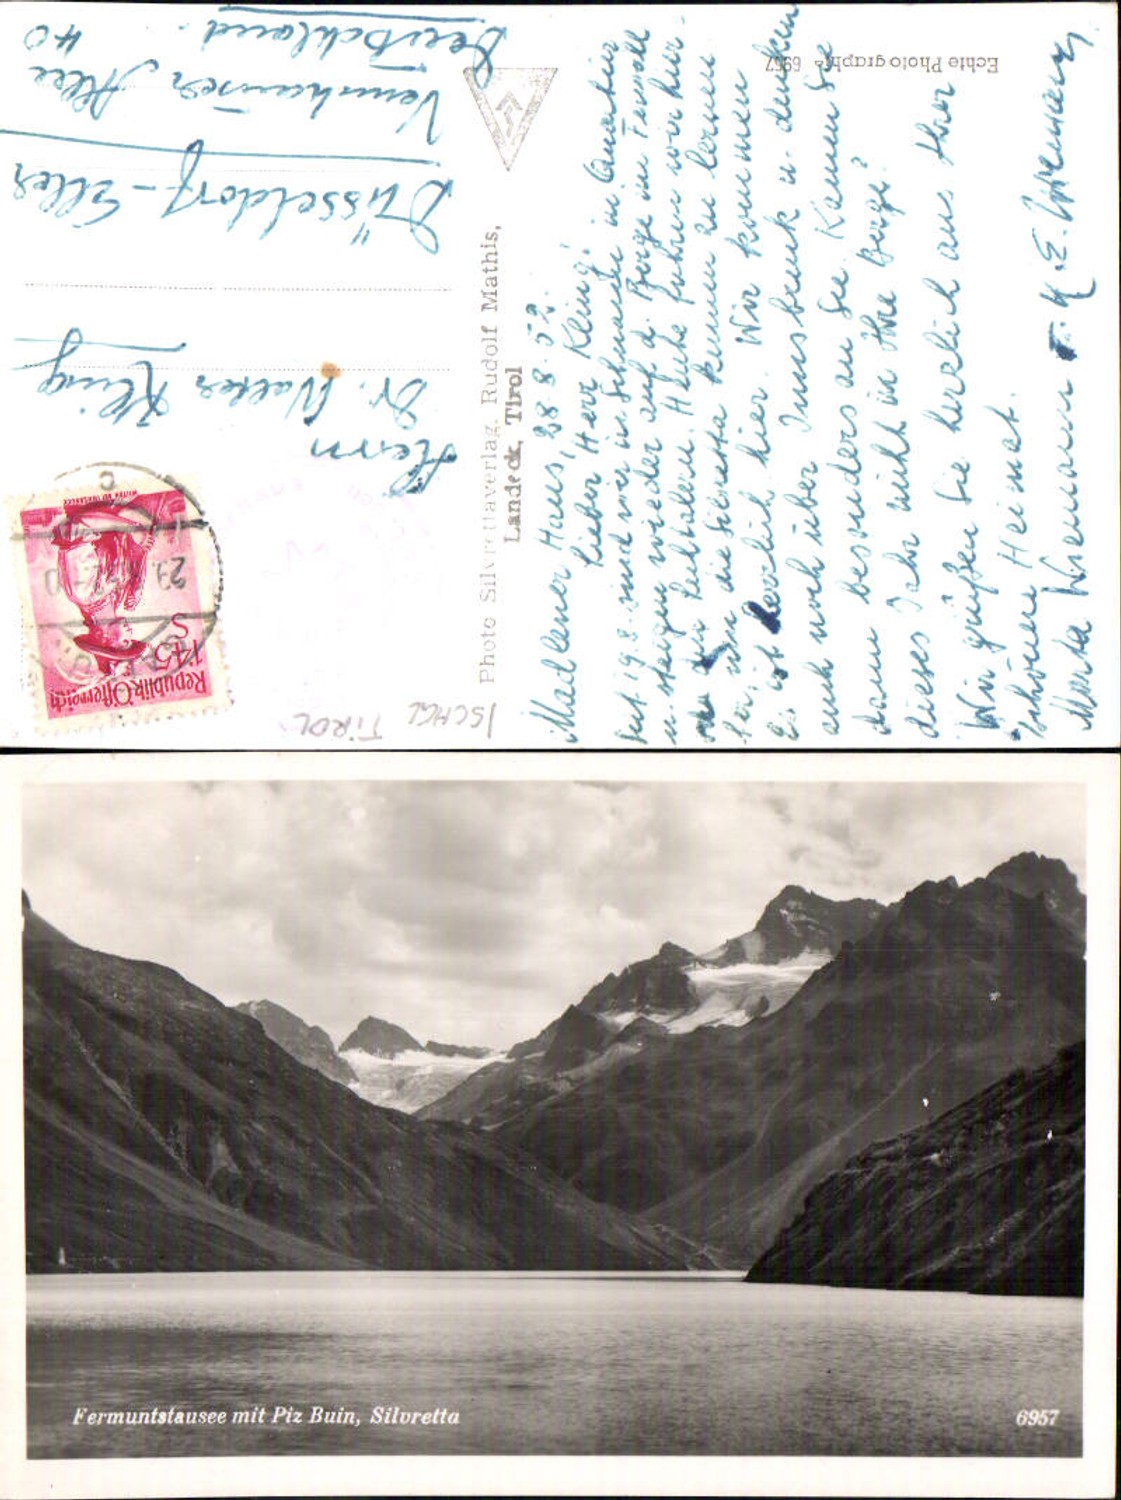 Madlener Haus, 28.8.52.
Lieber Herr Kling!
Seit 19.8. sind wir in Schnann in Quartier
u. steigen wieder auf d. Berge im Ferwall
Heute fuhren wir hier-
her, um die Silvretta kennen zu lernen
Es ist herrlich hier. Wir kommen
auch noch über Innsbruck u. denken
dann besonders an Sie. Kamen Sie
dieses Jahr nicht in Ihre Berge?
Wir grüßen Sie herzlich aus Ihrer
schönen Heimat.
Marta Wiemann
Echte Photographie 6957
Photo Silvrettaverlag. Rudolf Mathis,
Landeck, Tirol
Herrn
Dr. Walter Kling
Düsseldorf-Eller
Vennhauser Allee 40
Deutschland.
Republik Österreich
1'45
S
ISCHGL
TIROL
Fermuntstausee mit Piz Buin, Silvretta
6957